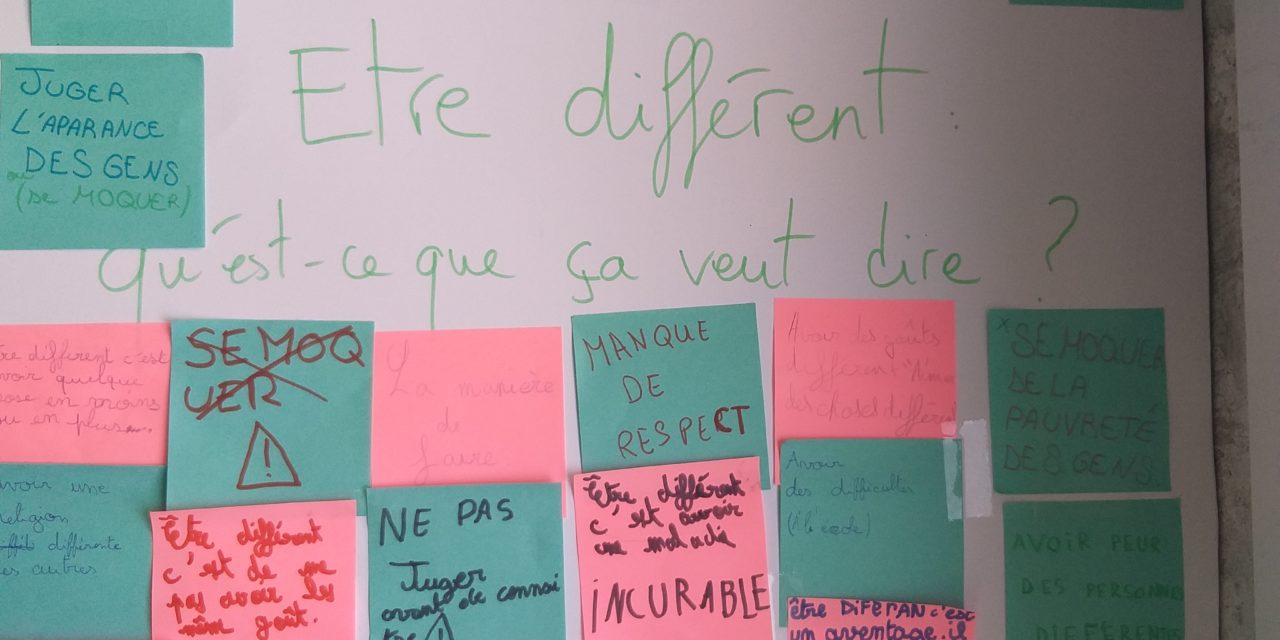 Etre différent :
Qu'est-ce que ça veut dire ?
JUGER
L'APARANCE
DES GENS
ou
(se MOQUER)
différent c'est
quelque
en moins
ou en plus...
SE MOQ
UER
!
La manière
de
faire.
MANQUE
DE
RESPECT
Avoir des goûts
différent "Aimer
des choses différen
x SE MOQUER
DE LA
PAUVRETÉ
DES GENS.
avoir une
religion
différente
des autres
Être différent
c'est de ne
pas avoir les
même goût.
NE PAS
Juger
avant de connai
tre !
Être différent
c'est avoir
une maladie
iNCURABLE
Avoir
des difficultés
(à l'école)
être DiFERAN c'est
un aventage. il
AVOIR PEUR
DES PERSONNES
DIFFÉRENT